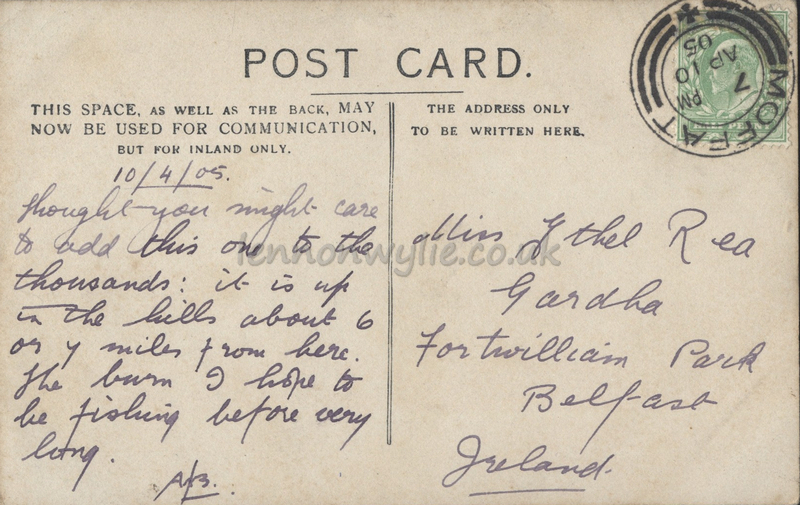 POST CARD.
THIS SPACE, AS WELL AS THE BACK, MAY
NOW BE USED FOR COMMUNICATION,
BUT FOR INLAND ONLY.
THE ADDRESS ONLY
TO BE WRITTEN HERE.
MOFFAT
7 PM
AP 10
05
10/4/05.
thought you might care
to add this one to the
thousands: it is up
in the hills about 6
or 7 miles from here.
The burn I hope to
be fishing before very
long.
Miss Ethel Rea
Gardha
Fortwilliam Park
Belfast
Ireland.
lennonwylie.co.uk